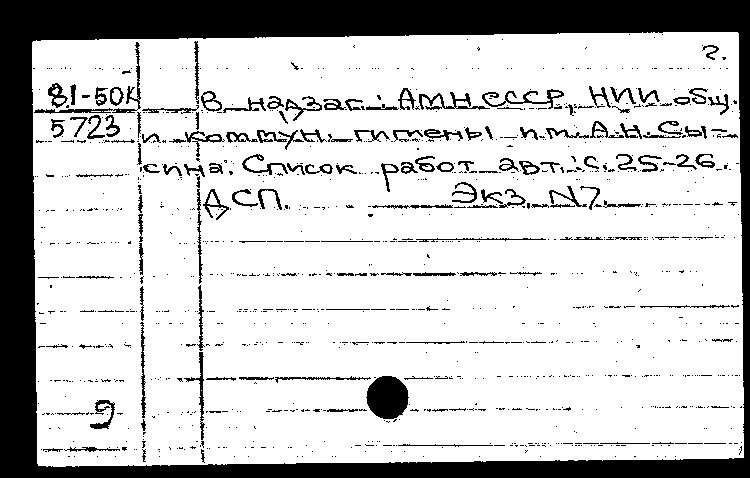 2.
81-50К В надзаг.: АМН СССР, НИИ общ.
5723 и коммун. гигиены им. А.Н.Сы-
сина. Список работ авт.: с. 25-26.
ДСП. Экз. N7.
9